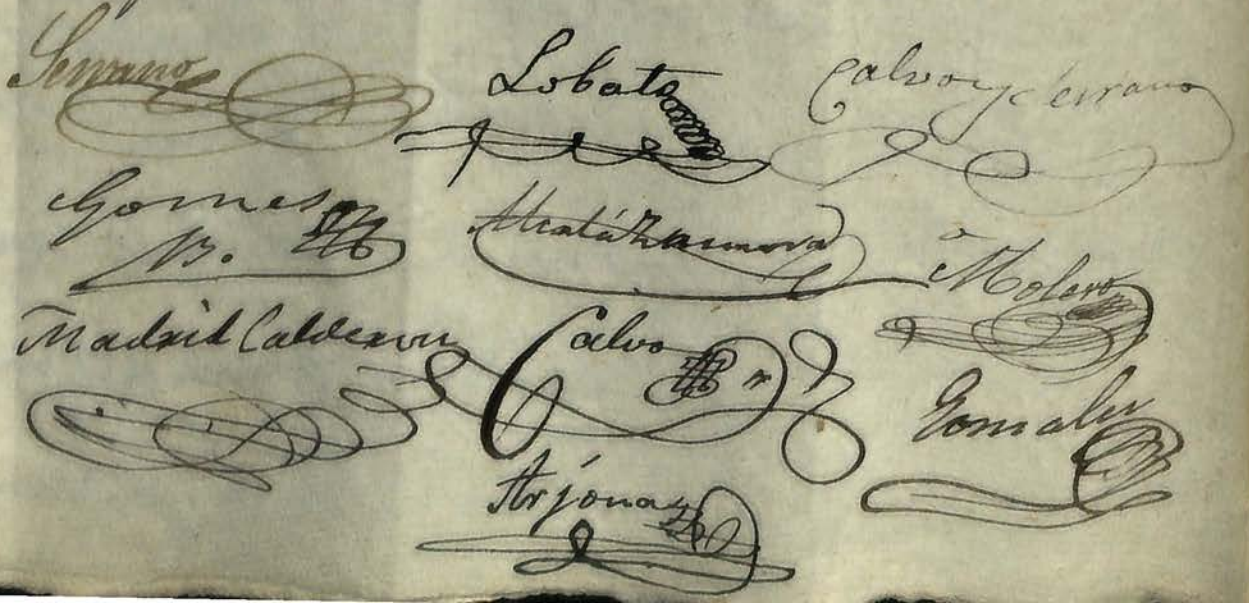 Serrano Lobato Calvo y Serrano
Gomes Alcalá Zamora Molero
B.
Madrid Calderon Calvo Gonzalez
Arjona